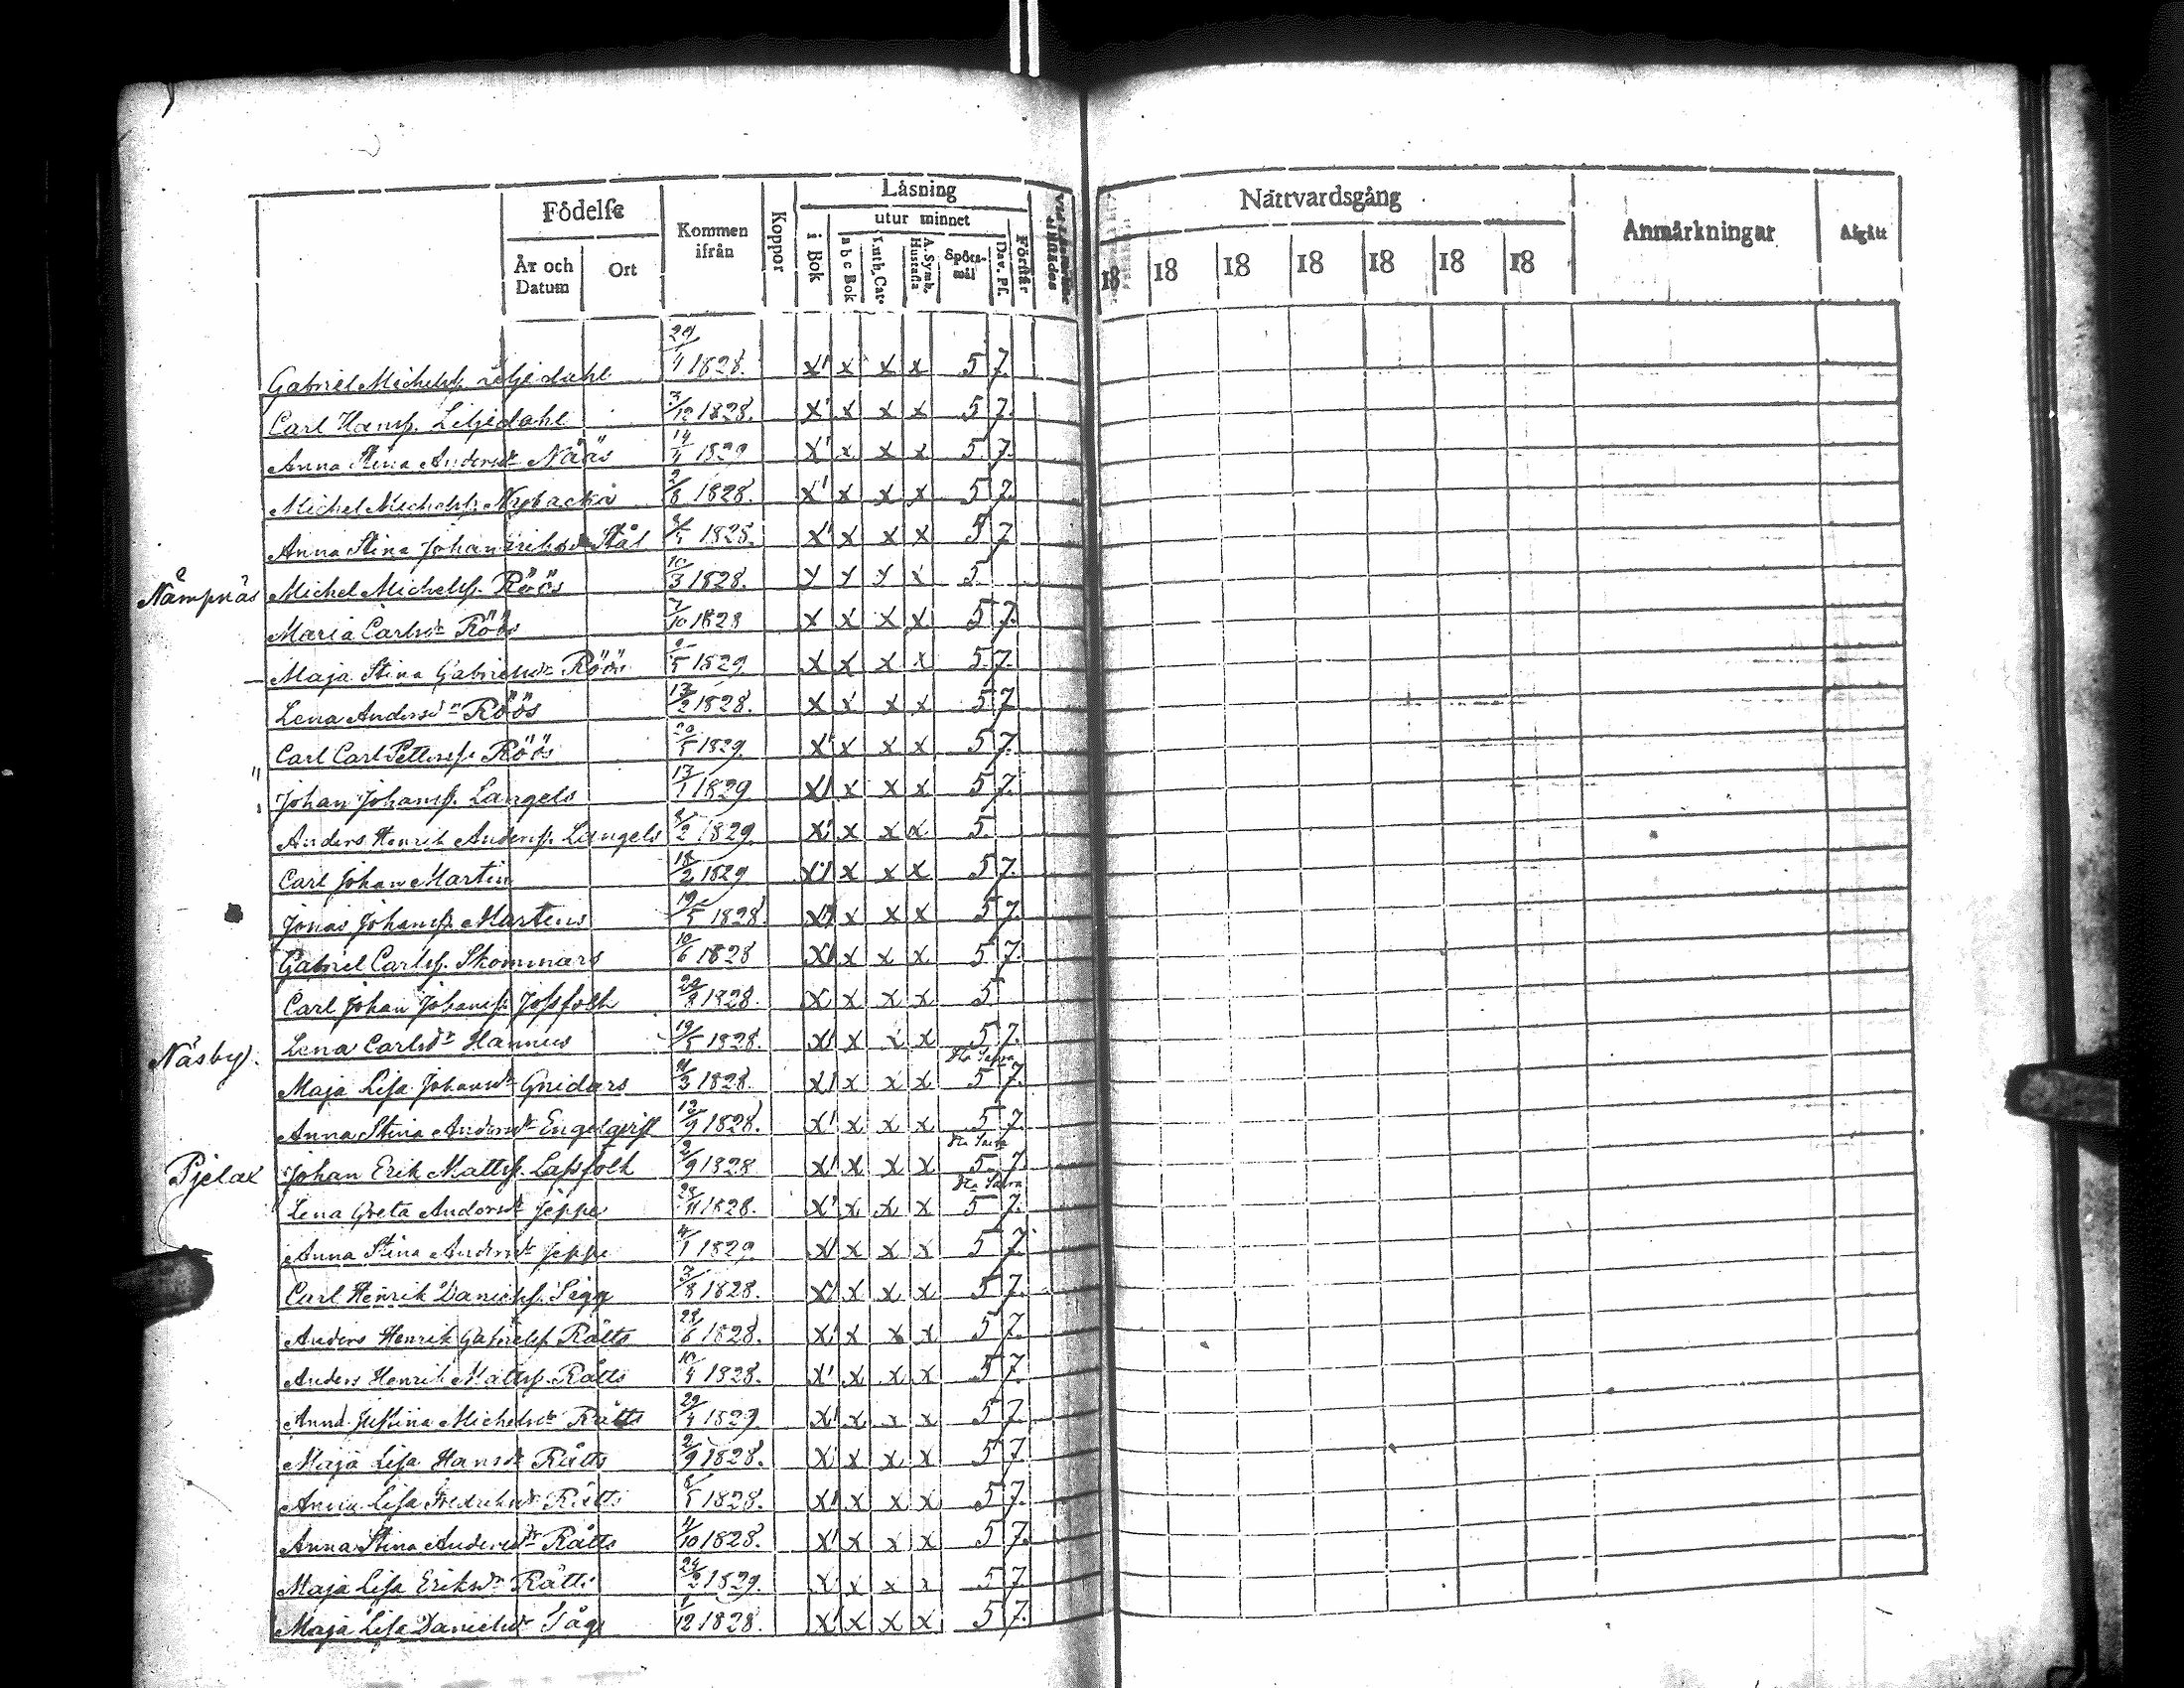 Födelse
År och Datum
Ort
Kommen ifrån
Koppor
Läsning
utur minnet
i Bok
a b c Bok
Luth. Cat.
A. Symb. Hustafla
Spörs-mål
Dav. Ps.
Förstår
Nattvardsgång
18 18 18 18 18 18 18
Anmärkningar
Afgått
Gabriel Michelss. Liljedahl 29/4 1828. x x x x 5 7.
Carl Hanss. Liljedahl 3/12 1828. x x x x 5 7.
Anna Stina Andersdr Nääs 14/4 1829 x x x x 5 7.
Michel Michelss. Nybacka 2/8 1828. x x x x 5 7.
Anna Stina Johan Eriksdr Stål 1828. x x x x 5 7
Nämpnäs Michel Michelss. Röös 10/3 1828. x x x x 5
Maria Carlsdr Röös 7/10 1828 x x x x 5 7.
Maja Stina Gabrielsdr Röös /5 1829 x x x x 5 7.
Lena Andersdr Röös 13/2 1828. x x x x 5 7
Carl Carl Petterss. Röös 20/5 1829. x x x x 5 7.
Johan Johanss. Långels 13/1 1829 x x x x 5 7.
Anders Henrik Anderss. Långels 8/2 1829. x x x x 5
Carl Johan Martin 18/2 1829 x x x x 5 7.
Jonas Johanss. Martens 19/5 1828. x x x x 5 7.
Gabriel Carlss. Skommars 10/6 1828 x x x x 5 7.
Carl Johan Johanss. Jossfolk 29/8 1828. x x x x 5
Näsby. Lena Carlsdr Hannus 19/5 1828. x x x x 5 7.
Maja Lisa Johansdr Gnidars /3 1828. x x x x 5 7.
Anna Stina Andersdr Engelqvist 12/9 1828. x x x x 5 7.
Pjelax Johan Erik Mattss. Lassfolk 2/9 1828 x x x x 5 7.
Lena Greta Andersdr Jeppe 28/11 1828. x x x x 5 7.
Anna Stina Andersdr Jeppe 4/1 1829. x x x x 5 7.
Carl Henrik Danielss. Sigg 3/8 1828. x x x x 5 7.
Anders Henrik Gabrielss. Rätts 28/6 1828. x x x x 5 7.
Anders Henrik Mattss. Rätts 10/4 1828. x x x x 5 7.
Anna Justina Michelsdr Rätts 29/4 1829. x x x x 5 7.
Maja Lisa Hansdr Rätts 2/9 1828. x x x x 5 7.
Anna Lisa Fredriksdr Rätts 8/5 1828. x x x x 5 7.
Anna Stina Andersdr Rätts 4/10 1828. x x x x 5 7.
Maja Lisa Eriksdr Rätts 24/2 1829. x x x x 5 7.
Maja Lisa Danielsdr /12 1828. x x x x 5 7.